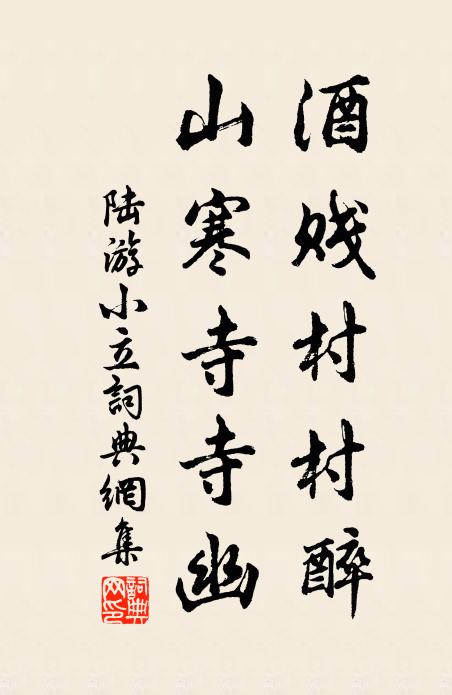 酒贱村村醉
山寒寺寺幽
陆游小立詞典網集
詞典网印